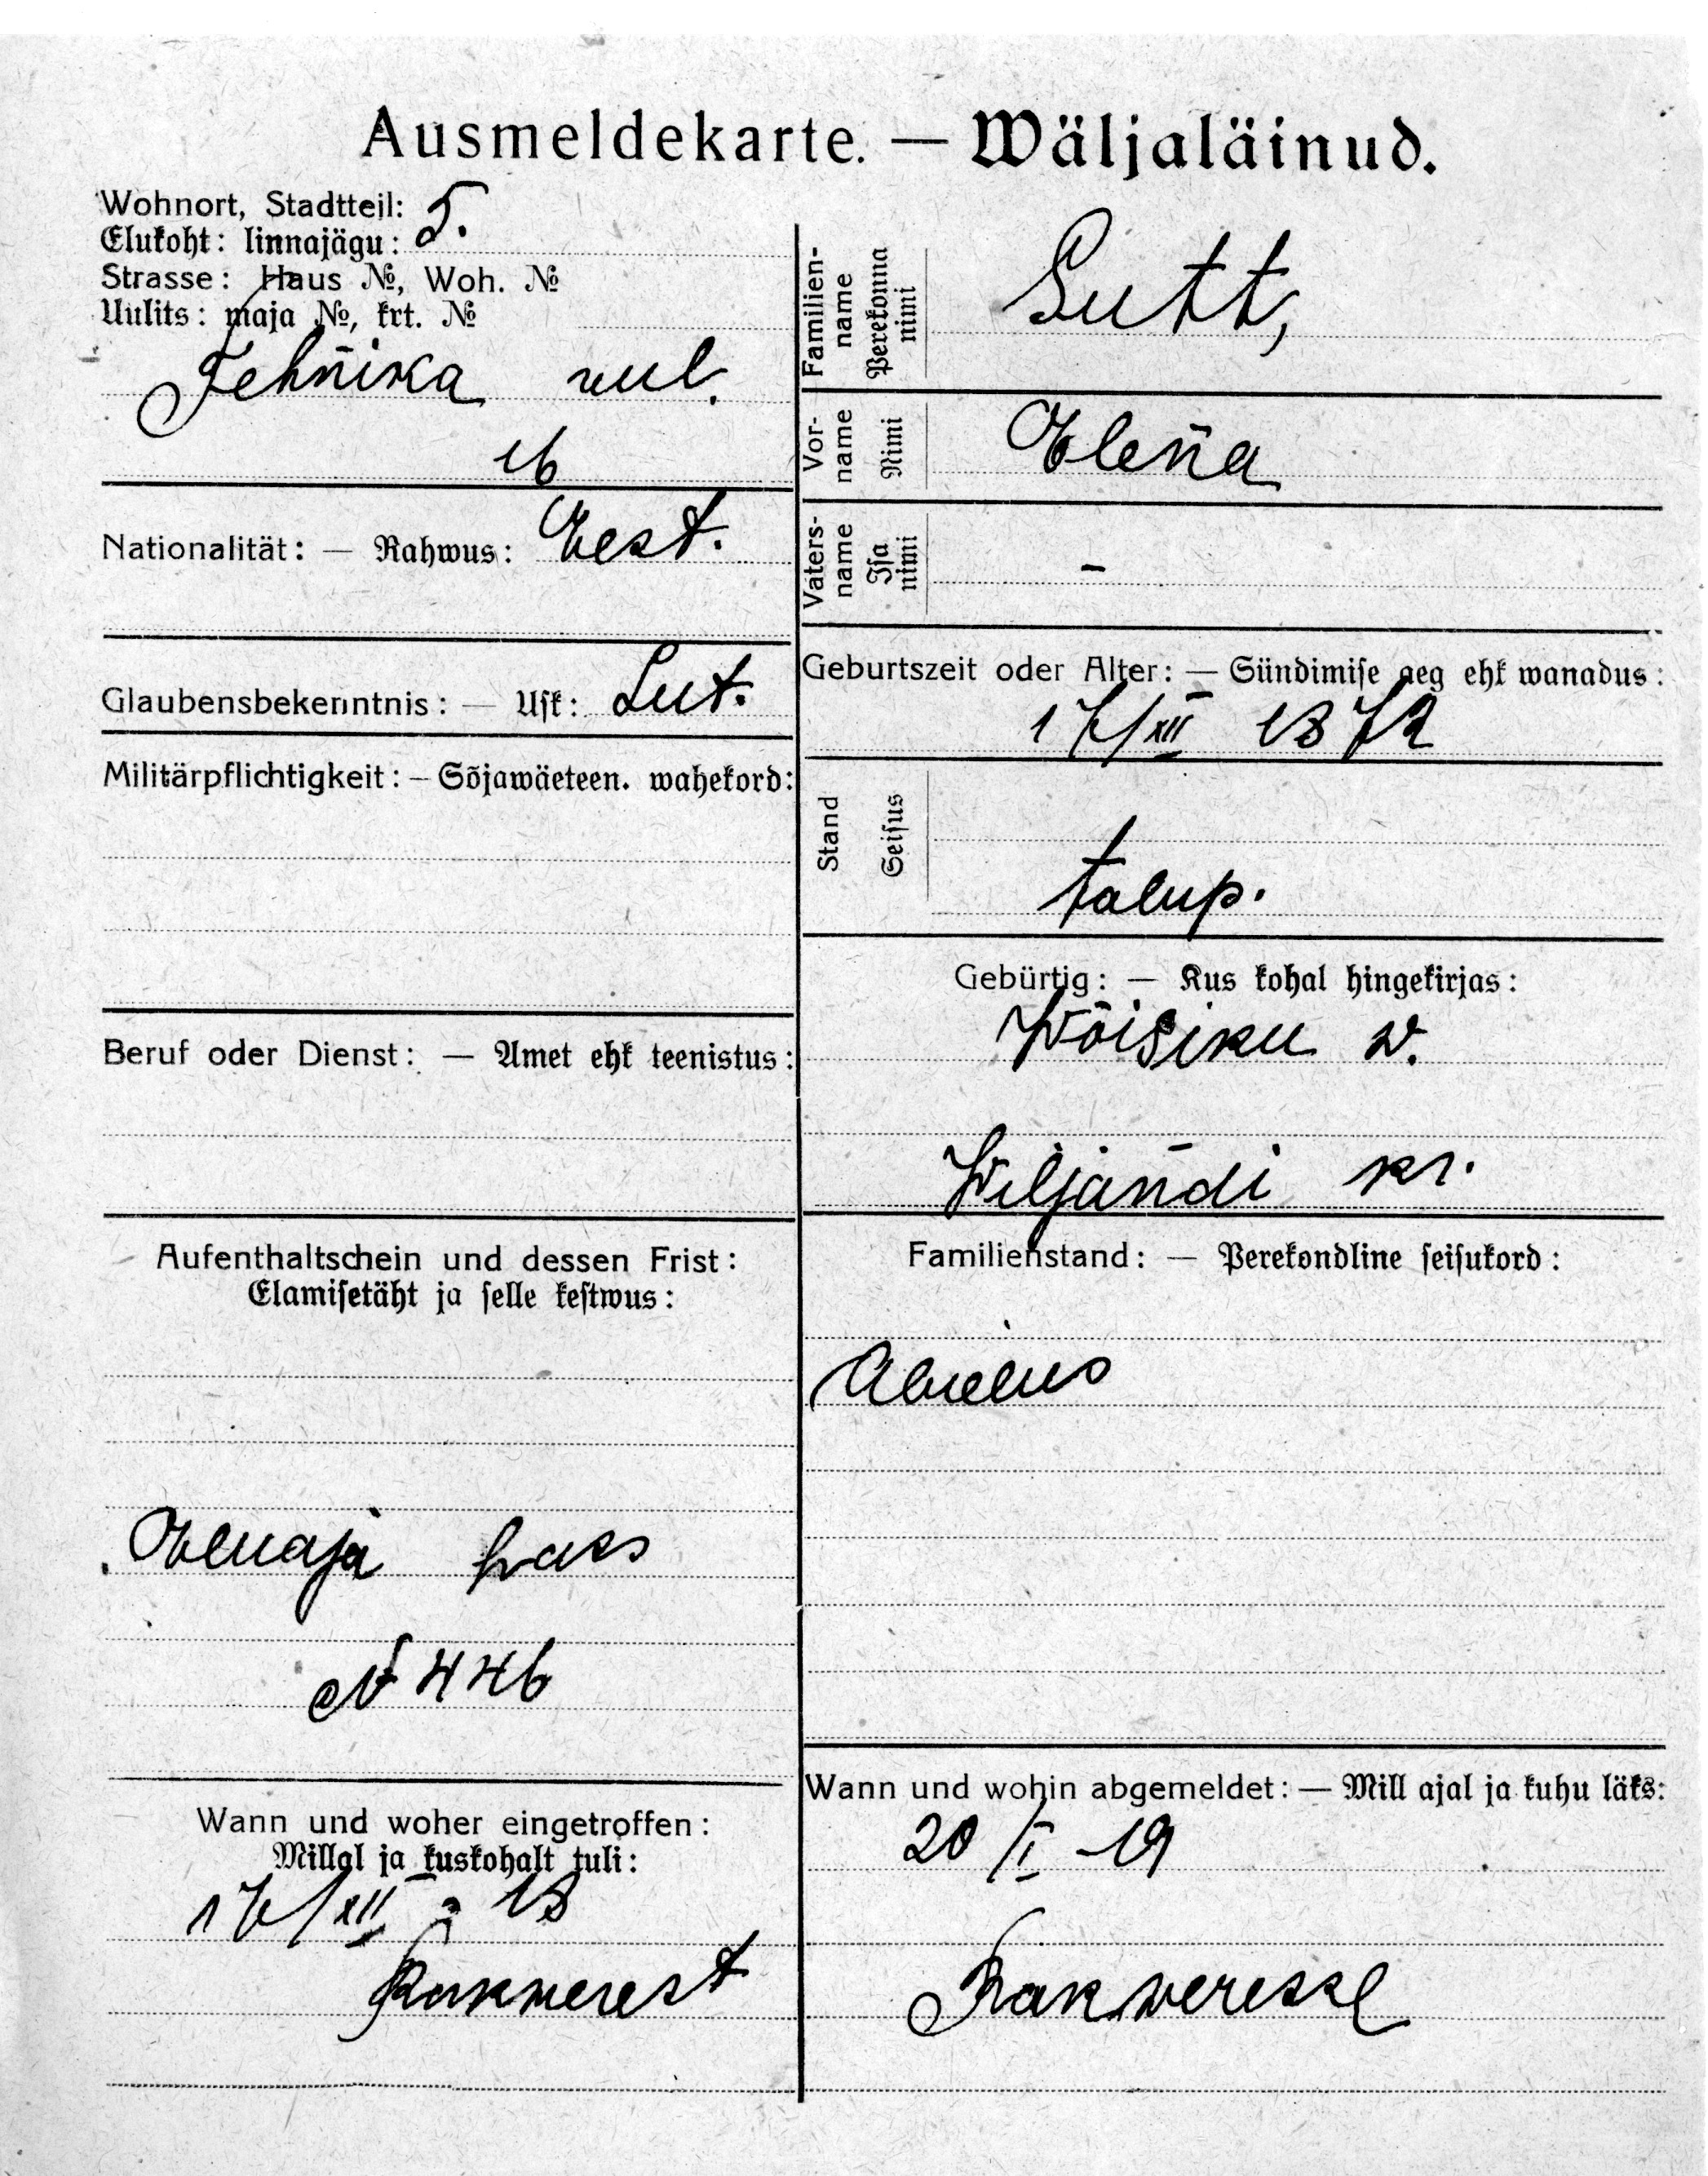 Ausmeldekarte. — Wäljaläinud.
Wohnort, Stadtteil:
Elukoht: linnajägu: 5.
Strasse: Haus №, Woh. №
Uulits: maja №, krt. №
Tehnika uul.
16
Nationalität: — Rahwus: Eest.
Glaubensbekenntnis: — Usk: Lut.
Militärpflichtigkeit: — Sõjawäeteen. wahekord:
Beruf oder Dienst: — Amet ehk teenistus:
Aufenthaltschein und dessen Frist:
Elamisetäht ja selle kestwus:
Eluaja pass
№ 446
Wann und woher eingetroffen:
Millal ja kuskohalt tuli:
17/XII - 18
Rakwerest
Familien-
name
Perekonna
nimi
Sutt,
Vor-
name
Nimi
Elena
Vaters-
name
Isa
nimi
-
Geburtszeit oder Alter: — Sündimise aeg ehk wanadus:
17/XII 1872
Stand
Seisus
talup.
Gebürtig: — Kus kohal hingekirjas:
Wõisiku w.
Wiljandi kr.
Familienstand: — Perekondline seisukord:
Abielus
Wann und wohin abgemeldet: — Mill ajal ja kuhu läks:
20/I -19
Rakweresse